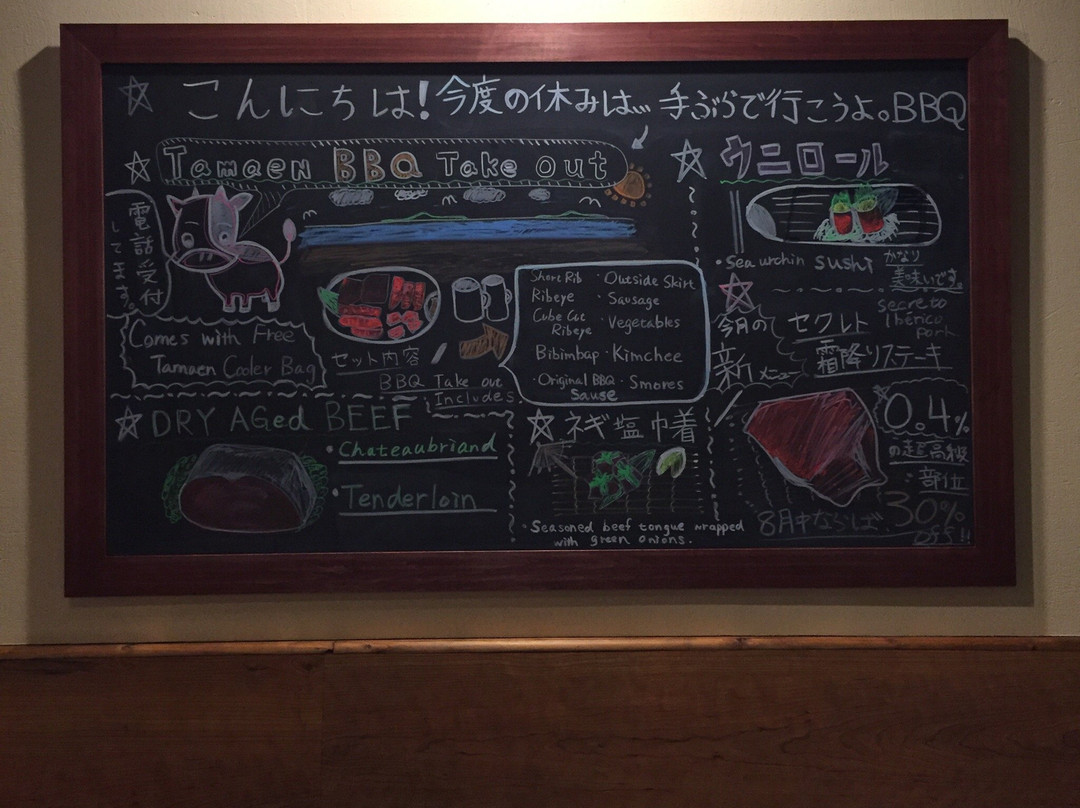 こんにちは!今度の休みは… 手ぶらで行こうよ。BBQ
Tamaen BBQ Take Out
電話受付
してます。
Comes with Free
Tamaen Cooler Bag
セット内容
BBQ Take out
Includes
Short Rib ・Outside Skirt
Ribeye ・Sausage
Cube Cut
Ribeye ・Vegetables
Bibimbap ・Kimchee
・Original BBQ
Sause ・Smores
ウニロール
・Sea urchin sushi
かなり
美味いです。
今月の
新メニュー
セクレト
secreto
Iberico
Pork
霜降りステーキ
0.4%
の超高級
部位
8月中ならば 30%
off!
DRY AGed BEEF
・Chateaubriand
・Tenderloin
ネギ塩巾着
・Seasoned beef tongue wrapped
with green onions.